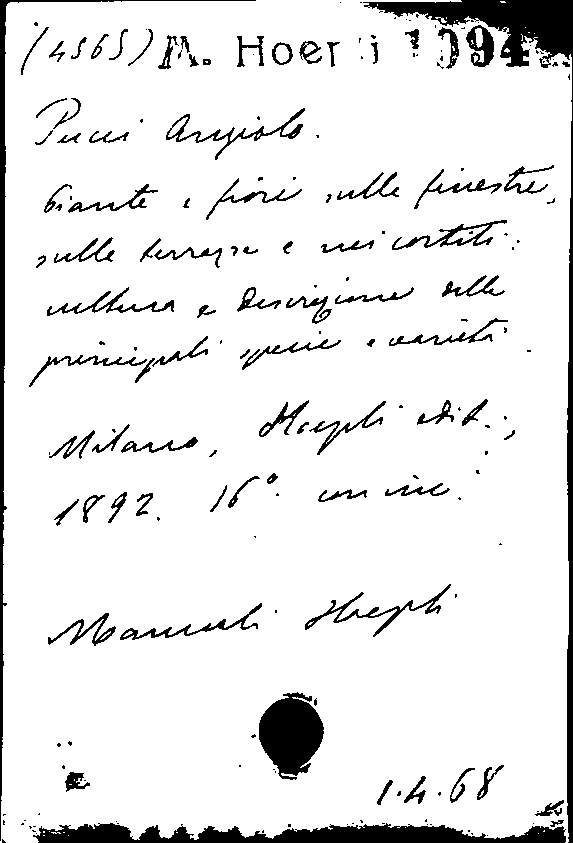 (4565) M. Hoepli 1094
Pucci Angiolo.
Piante e fiori sulle finestre,
sulle terrazze e nei cortili:
cultura e descrizione delle
principali specie e varietà.
Milano, Hoepli edit.,
1892. 16° con inc.
Manuali Hoepli
1.4.68